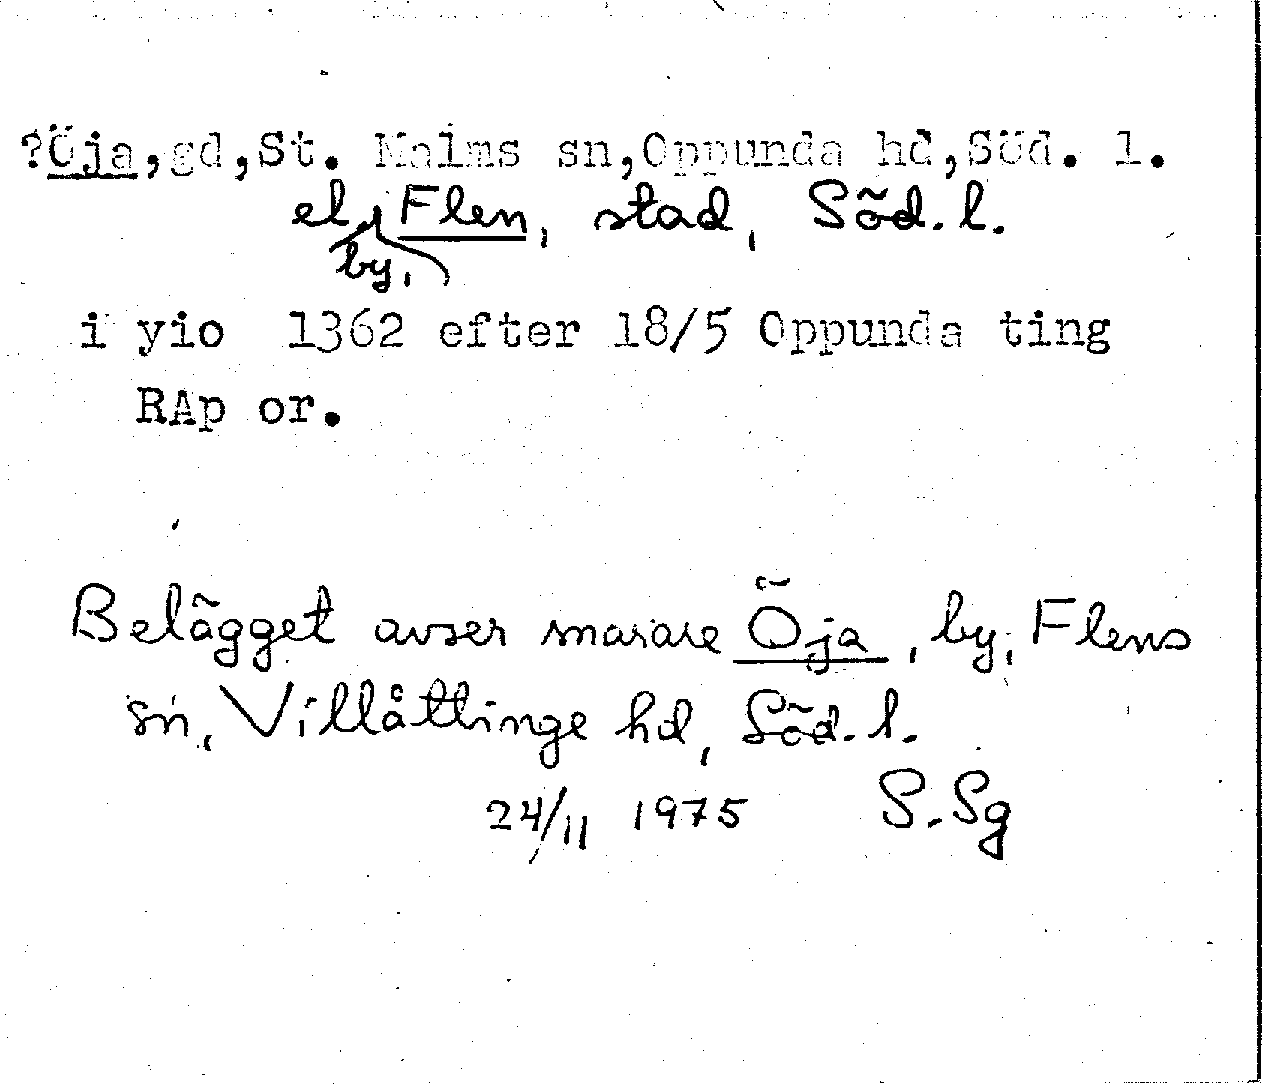 ?Öja,gd,St. Malms sn,Oppunda hd,Söd. l.
el. Flen, stad, Söd. l.
by,
i yio 1362 efter 18/5 Oppunda ting
RAp or.
Belägget avser snarare Öja, by, Flens
sn, Villåttinge hd, Söd. l.
24/11 1975 S. Sg